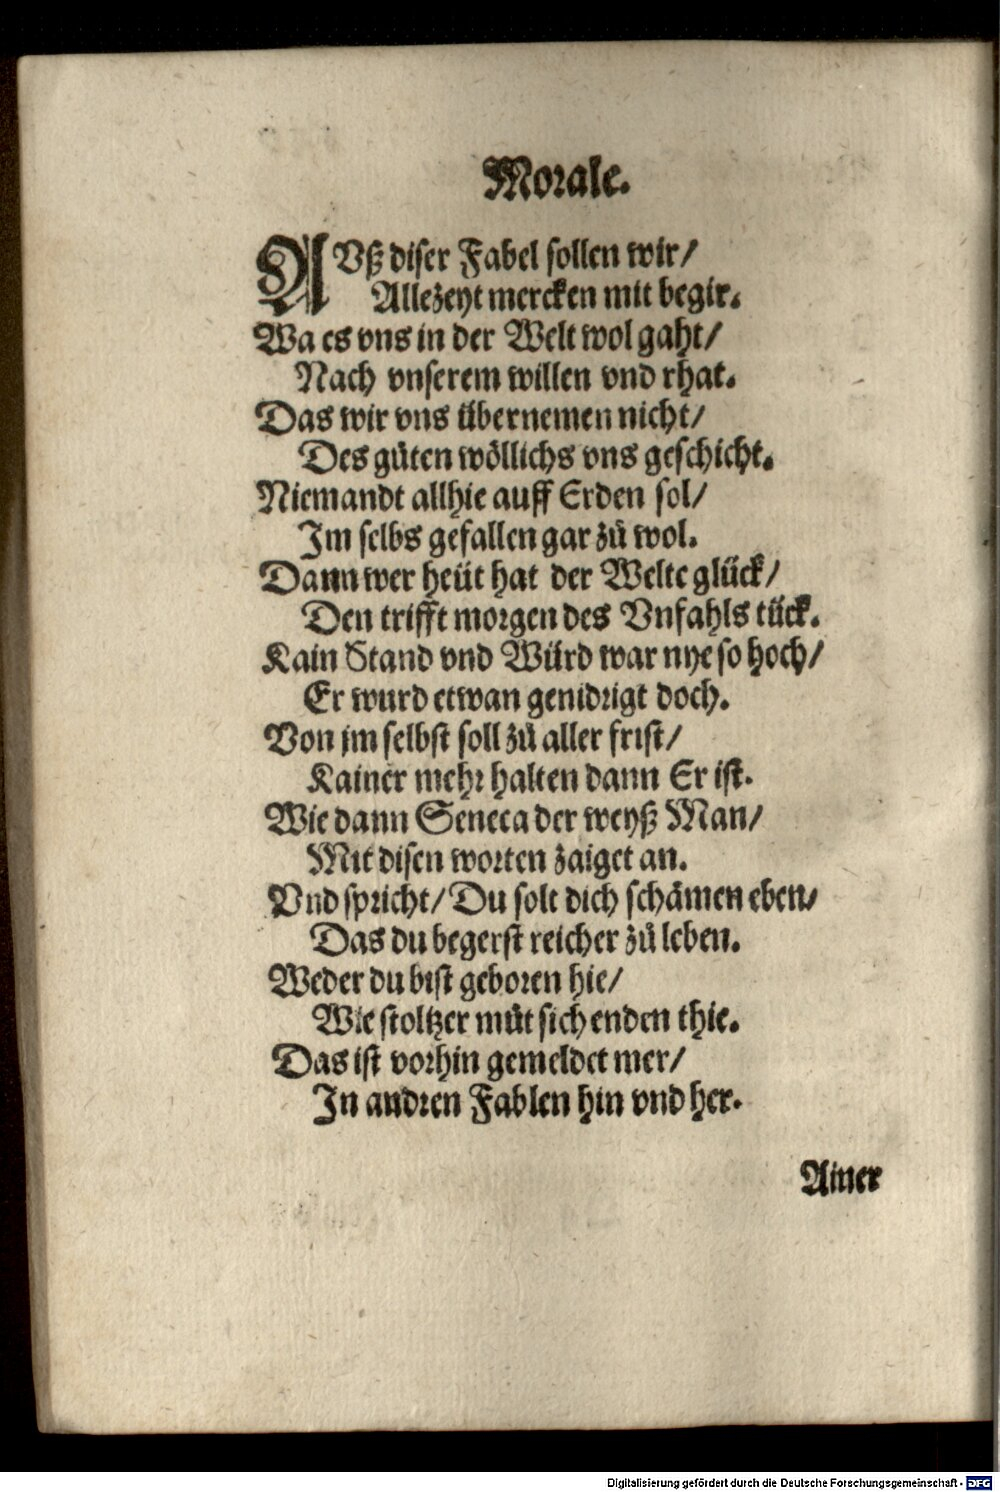 Morale.
AVß diser Fabel sollen wir/
Allezeyt mercken mit begir.
Wa es vns in der Welt wol gaht/
Nach vnserem willen vnd rhat.
Das wir vns übernemen nicht/
Des gůten wöllichs vns geschicht.
Niemandt allhie auff Erden sol/
Im selbs gefallen gar zů wol.
Dann wer heüt hat der Welte glück/
Den trifft morgen des Vnfahls tück.
Kain Stand vnd Würd war nye so hoch/
Er wurd etwan genidrigt doch.
Von jm selbst soll zů aller frist/
Kainer mehr halten dann Er ist.
Wie dann Seneca der weyß Man/
Mit disen worten zaiget an.
Vnd spricht/ Du solt dich schämen eben/
Das du begerst reicher zů leben.
Weder du bist geboren hie/
Wie stoltzer můt sich enden thie.
Das ist vorhin gemeldet mer/
In andren Fablen hin vnd her.
Ainer
Digitalisierung gefördert durch die Deutsche Forschungsgemeinschaft - DFG